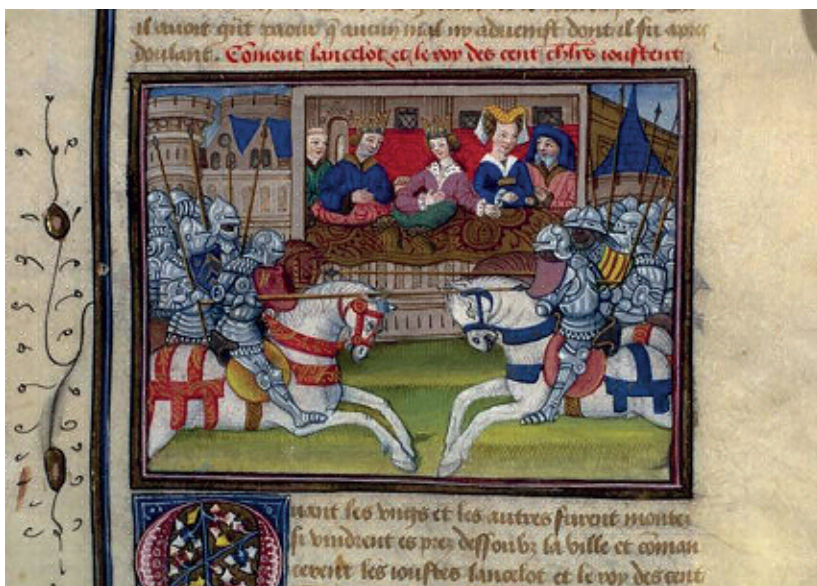 il avoit q̃ut paour q̃ aucun mal ny aduenist dont il fu apres
doulant. Cõment lancelot et le roy des cent chl̃rs ioustent
Quant les vngs et les autres furent montez
si vindrent es prez dessoubz la ville et cõman
cerent les ioustes lancelot et le roy des cent